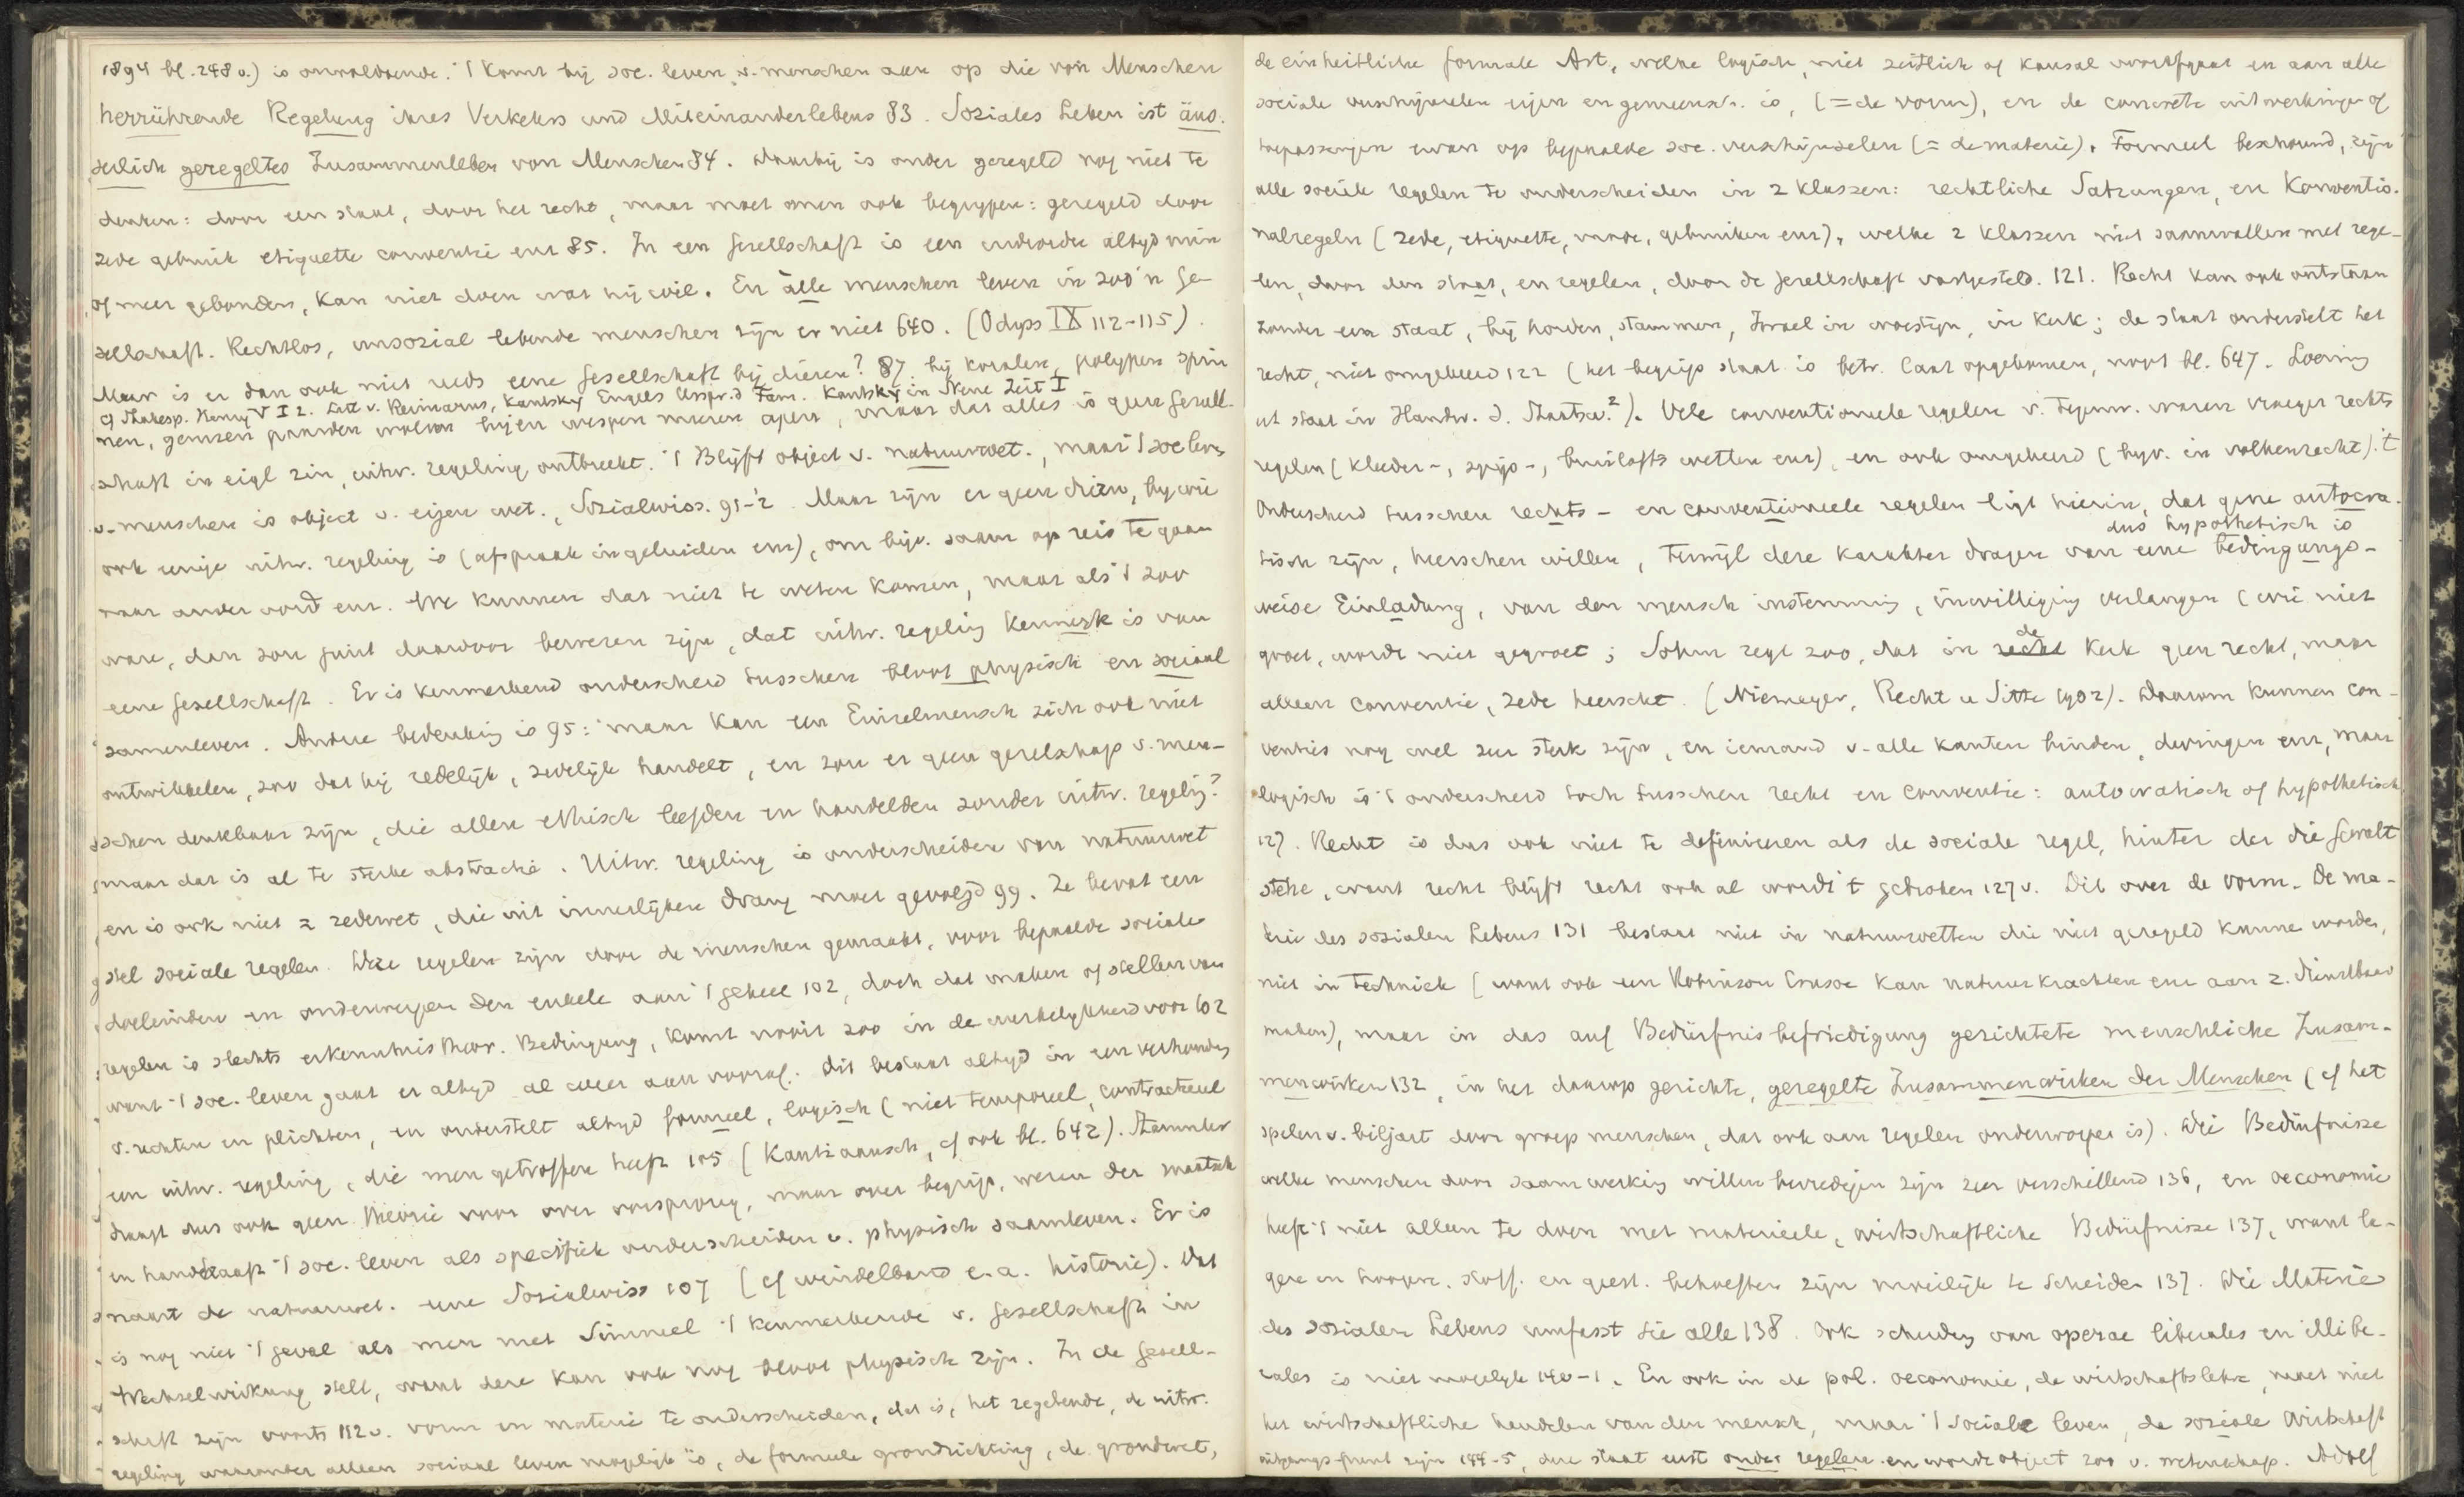 1894 bl. 248 v.) is onvoldoende. 't Komt bij soc. leven v. menschen aan op die von Menschen
herrührende Regelung ihres Verkehrs und Miteinanderlebens 83. Soziales Leben ist äus-
serlich geregeltes Zusammenleben von Menschen 84. Daarbij is onder geregeld nog niet te
denken: door een staat, door het recht, maar moet men ook begrijpen: geregeld door
zede gebruik etiquette conventie enz 85. In een Gesellschaft is een individu altijd min
of meer gebonden, kan niet doen wat hij wil. En alle menschen leven in zoo'n Ge-
sellschaft. Rechtlos, unsozial lebende menschen zijn er niet 640. (Odyss IX 112-115).
Maar is er dan ook niet reeds eene Gesellschaft bij dieren? 87 bij koralen, polypen sprin
cf Shakesp. Henry V I 2. Litt v. Reimarus, Kautsky Engels Urspr. d Fam. Kautsky in Neue Zeit I
nen, gemzen paarden wolven bijen wespen mieren apen, maar dat alles is geen Gesell-
schaft in eigl zin, uitw. regeling ontbreekt. 't Blijft object v. natuurwet., maar 't soc leven
v. menschen is object v. eigen wet., Sozialwiss. 91-2. Maar zijn er geen dieren, bij wie
ook eenige uitw. regeling is (afspraak in geluiden enz), om bijv. saam op reis te gaan
naar ander oord enz. We kunnen dat niet te weten komen, maar als 't zoo
ware, dan zou juist daardoor bewezen zijn, dat uitw. regeling kenmerk is van
eene Gesellschaft. Er is kenmerkend onderscheid tusschen bloot physisch en sociaal
samenleven. Andere bedenking is 95: maar kan een Einzelmensch zich ook niet
ontwikkelen, zoo dat hij redelijk, zedelijk handelt, en zou er geen gezelschap v. men-
schen denkbaar zijn, die allen ethisch leefden en handelden zonder uitw. regeling?
maar dat is al te sterke abstractie. Uitw. regeling is onderscheiden van natuurwet
en is ook niet = zedewet, die uit innerlijken drang moet gevolgd 99. Ze bevat een
stel sociale regelen. Deze regelen zijn door de menschen gemaakt, voor bepaalde sociale
doeleinden en onderwerpen den enkele aan 't geheel 102, doch dat maken of stellen van
regelen is slechts erkenntnistheor. Bedingung, komt nooit zoo in de werkelijkheid voor 102
want 't soc. leven gaat er altijd al weer aan vooraf. Dit bestaat altijd in een verhouding
v. rechten en plichten, en onderstelt altijd formeel, logisch (niet temporeel, contractueel
een uitw. regeling, die men getroffen heeft 105 (Kantiaansch, cf ook bl. 642). Stammler
draagt dus ook geen theorie voor over oorsprong, maar over begrip, wezen der maatsch
en handhaaft 't soc. leven als specifiek onderscheiden v. physisch saamleven. Er is
naast de natuurwet. eene Sozialwiss 107 (cf Windelband e.a. historie). Dat
is nog niet 't geval als men met Simmel 't kenmerkende v. Gesellschaft in
Wechselwirkung stelt, want deze kan ook nog bloot physisch zijn. In de Gesell-
schaft zijn voorts 112 v. vorm en materie te onderscheiden, dat is, het regelende, de uitw.
regeling waaronder alleen sociaal leven mogelijk is, de formeele grondrichting, de grondwet,
de einheitliche formale Art, welke logisch, niet zeitlich of kausal voorafgaat en aan alle
sociale verschijnselen eigen en gemeensch. is, (= de vorm), en de concrete uitwerkingen of
toepassingen ervan op bepaalde soc. verschijnselen (= de materie). Formeel beschouwd, zijn
alle sociale regelen te onderscheiden in 2 klassen: rechtliche Satzungen, en Konventio-
nalregeln (zede, etiquette, mode, gebruiken enz), welke 2 klassen niet saamvallen met rege-
len, door den staat, en regelen, door de Gesellschaft vastgesteld. 121. Recht kan ook ontstaan
zonder een staat, bij horden, stammen, Israel in woestijn, in kerk; de staat onderstelt het
recht, niet omgekeerd 122 (het begrip staat is betr. laat opgekomen, noot bl. 647. Loening
art staat in Handw. d. Staatsw.²). Vele conventioneele regelen v. tegenw. waren vroeger rechts
regelen (kleeder-, spijs-, bruiloftswetten enz), en ook omgekeerd (bijv. in volkenrecht). 't
Onderscheid tusschen rechts- en conventioneele regelen ligt hierin, dat gene autocra-
dus hypothetisch is
tisch zijn, heerschen willen, terwijl deze karakter dragen van eene bedingungs-
weise Einladung, van den mensch instemming, inwilliging verlangen (wie niet
groet, wordt niet gegroet; Sohm zegt zoo, dat in de kerk geen recht, maar
alleen conventie, zede heerscht. (Niemeyer, Recht u Sitte 1902). Daarom kunnen con-
venties nog wel zeer sterk zijn, en iemand v. alle kanten binden, dwingen enz, maar
logisch is 't onderscheid toch tusschen recht en conventie: autocratisch of hypothetisch
127. Recht is dus ook niet te definieeren als de sociale regel, hinter der die Gewalt
stehe, want recht blijft recht ook al wordt 't gebroken 127 v. Dit over de vorm. De ma-
terie des sozialen Lebens 131 bestaat niet in natuurwetten die niet geregeld kunnen worden,
niet in techniek (want ook een Robinson Crusoe kan natuurkrachten enz aan z. dienstbaar
maken), maar in das auf Bedürfnisbefriedigung gerichtete menschliche Zusam-
menwirken 132, in het daarop gerichte, geregelte Zusammenwirken der Menschen (cf het
spelen v. biljart door groep menschen, dat ook aan regelen onderworpen is). Die Bedürfnisse
welke menschen door saamwerking willen bevredigen zijn zeer verschillend 136, en oeconomie
heeft 't niet alleen te doen met materieele, wirtschaftliche Bedürfnisse 137, want la-
gere en hoogere, stoff. en geest. behoeften zijn moeilijk te scheiden 137. Die Materie
des sozialen Lebens umfasst sie alle 138. Ook scheiding van operae liberales en illibe-
rales is niet mogelijk 140-1. En ook in de pol. oeconomie, de wirtschaftslehre, moet niet
het wirtschaftliche handelen van den mensch, maar 't sociale leven, de soziale Wirtschaft
uitgangspunt zijn 144-5, deze staat eerst onder regelen en wordt object zoo v. wetenschap. Adolf